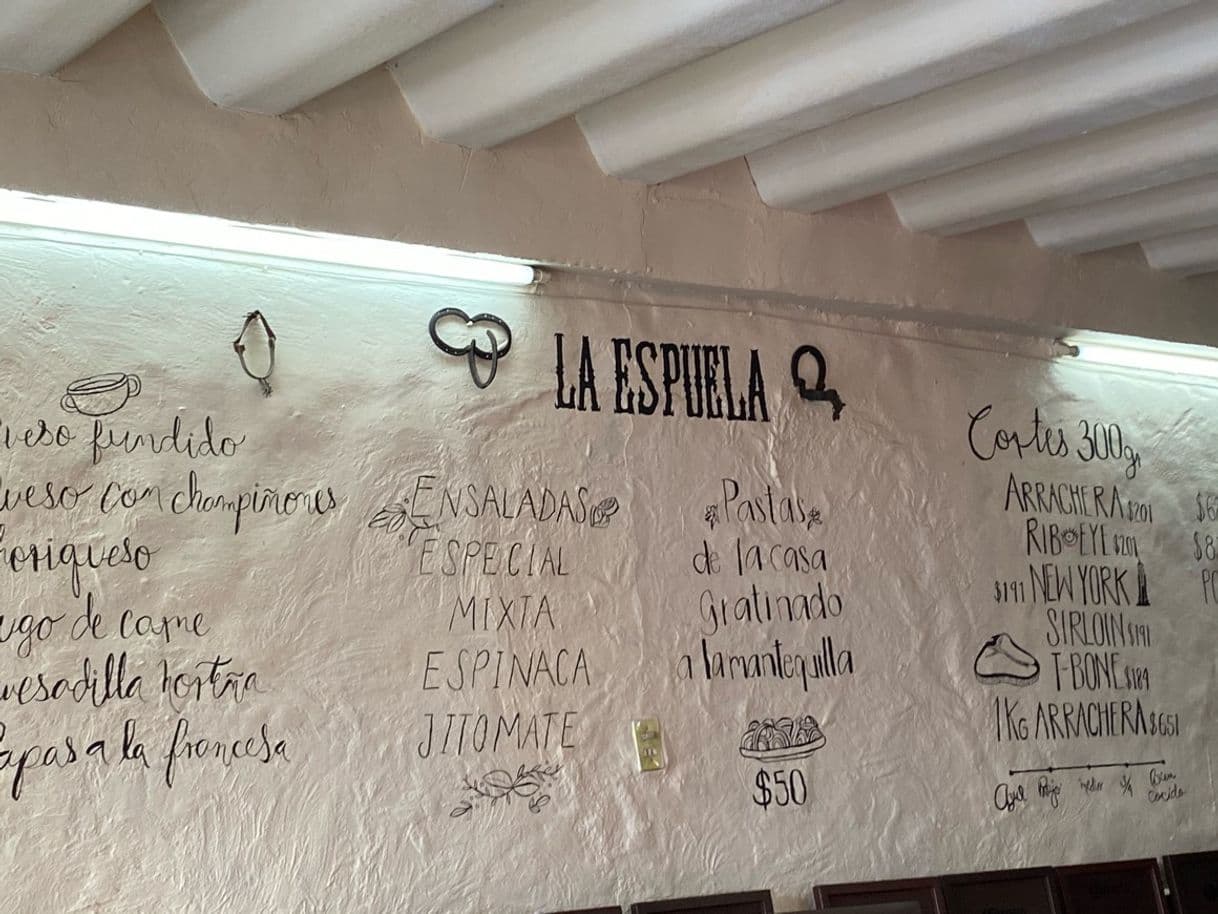 LA ESPUELA
ueso fundido
ueso con champiñones
horiqueso
ugo de carne
uesadilla horteña
apas a la francesa
ENSALADAS
ESPECIAL
MIXTA
ESPINACA
JITOMATE
Pastas
de la casa
gratinado
a la mantequilla
$50
Cortes 300gr
ARRACHERA $201
RIB EYE $201
$191 NEW YORK
SIRLOIN $191
T-BONE $189
1KG ARRACHERA $651
Azul Rojo medio 3/4 Bien cocido